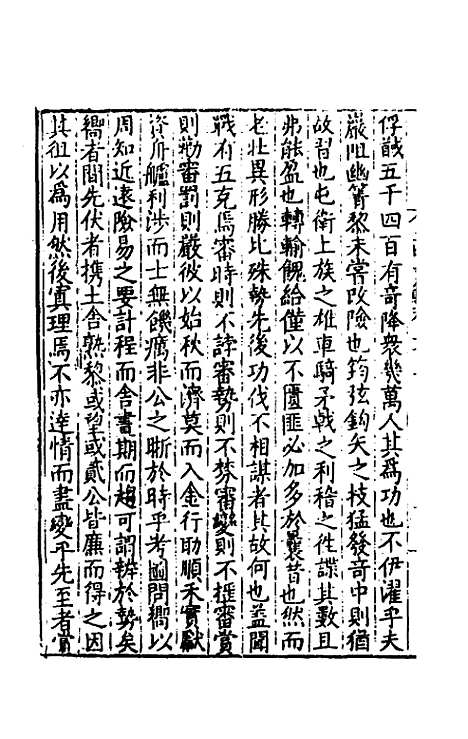 俘馘五千四百有竒降衆幾萬人其為功也不伊濯乎夫
巖阻幽箐黎未甞改險也筠弦鈎矢之技猛發竒中則猶
故習也屯衛上族之雄車騎矛戟之利稽之徃諜其數且
弗能盈也轉輸餽給僅以不匱匪必加多於曩昔也然而
老壯異形勝北殊勢先後功伐不相謀者其故何也盖聞
戰有五克焉審時則不誖審勢則不棼審變則不 審賞
則勸審罰則嚴彼以始秋而濟莫而入金行助順禾實獻
資舟艫利涉而士無饑癘非公之晰於時乎考圖問嚮以
周知近遠險易之要計程而舍書期而趨可謂辨於勢矣
嚮者間先伏者携土舍熟黎或望或貳公皆廉而得之因
其徂以為用然後寘理焉不亦逹情而盡變乎先至者賞